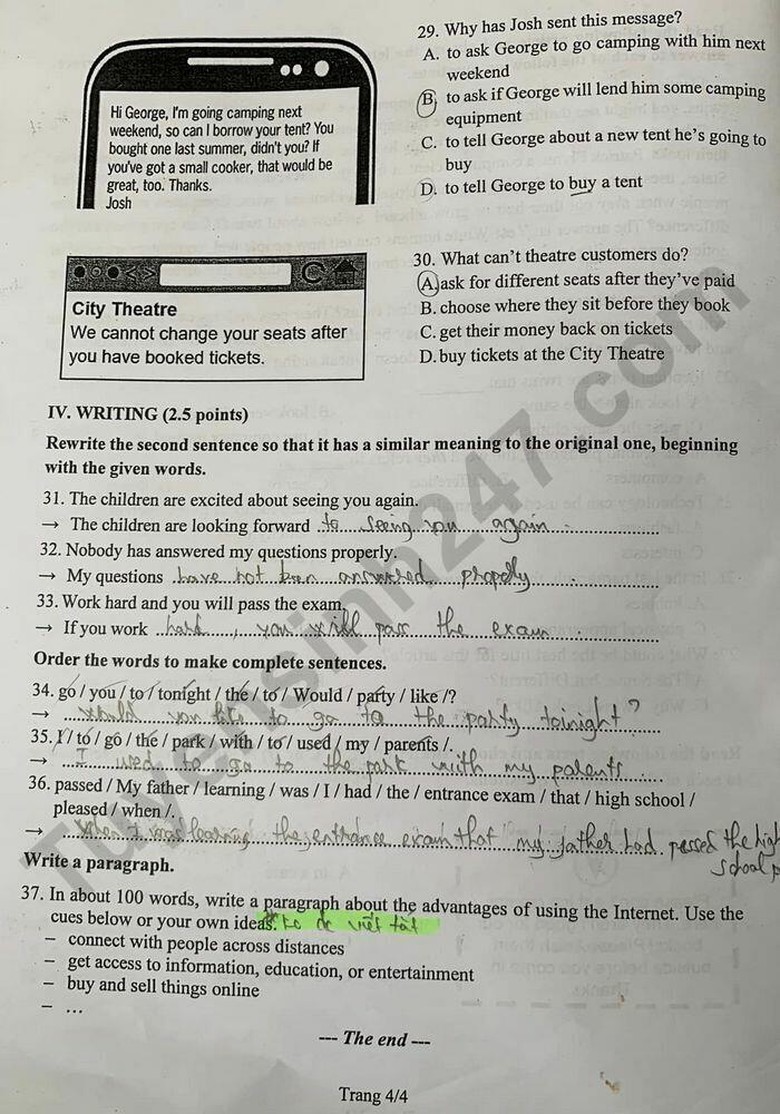 Hi George, I'm going camping next
weekend, so can I borrow your tent? You
bought one last summer, didn't you? If
you've got a small cooker, that would be
great, too. Thanks.
Josh
29. Why has Josh sent this message?
A. to ask George to go camping with him next
weekend
B. to ask if George will lend him some camping
equipment
C. to tell George about a new tent he's going to
buy
D. to tell George to buy a tent
City Theatre
We cannot change your seats after
you have booked tickets.
30. What can't theatre customers do?
A. ask for different seats after they've paid
B. choose where they sit before they book
C. get their money back on tickets
D. buy tickets at the City Theatre
IV. WRITING (2.5 points)
Rewrite the second sentence so that it has a similar meaning to the original one, beginning
with the given words.
31. The children are excited about seeing you again.
→ The children are looking forward to seeing you again.
32. Nobody has answered my questions properly.
→ My questions have not been answered properly.
33. Work hard and you will pass the exam.
→ If you work hard, you will pass the exam.
Order the words to make complete sentences.
34. go / you / to / tonight / the / to / Would / party / like /?
→ would you like to go to the party toinight?
35. I / to / go / the / park / with / to / used / my / parents /.
→ I used to go to the park with my parents.
36. passed / My father / learning / was / I / had / the / entrance exam / that / high school /
pleased / when /.
→ when I was learning the entrance exam that my father had passed the high
school
Write a paragraph.
37. In about 100 words, write a paragraph about the advantages of using the Internet. Use the
cues below or your own ideas. ko đc viết tắt
– connect with people across distances
– get access to information, education, or entertainment
– buy and sell things online
– ...
--- The end ---
Trang 4/4
Tuyensinh247.com